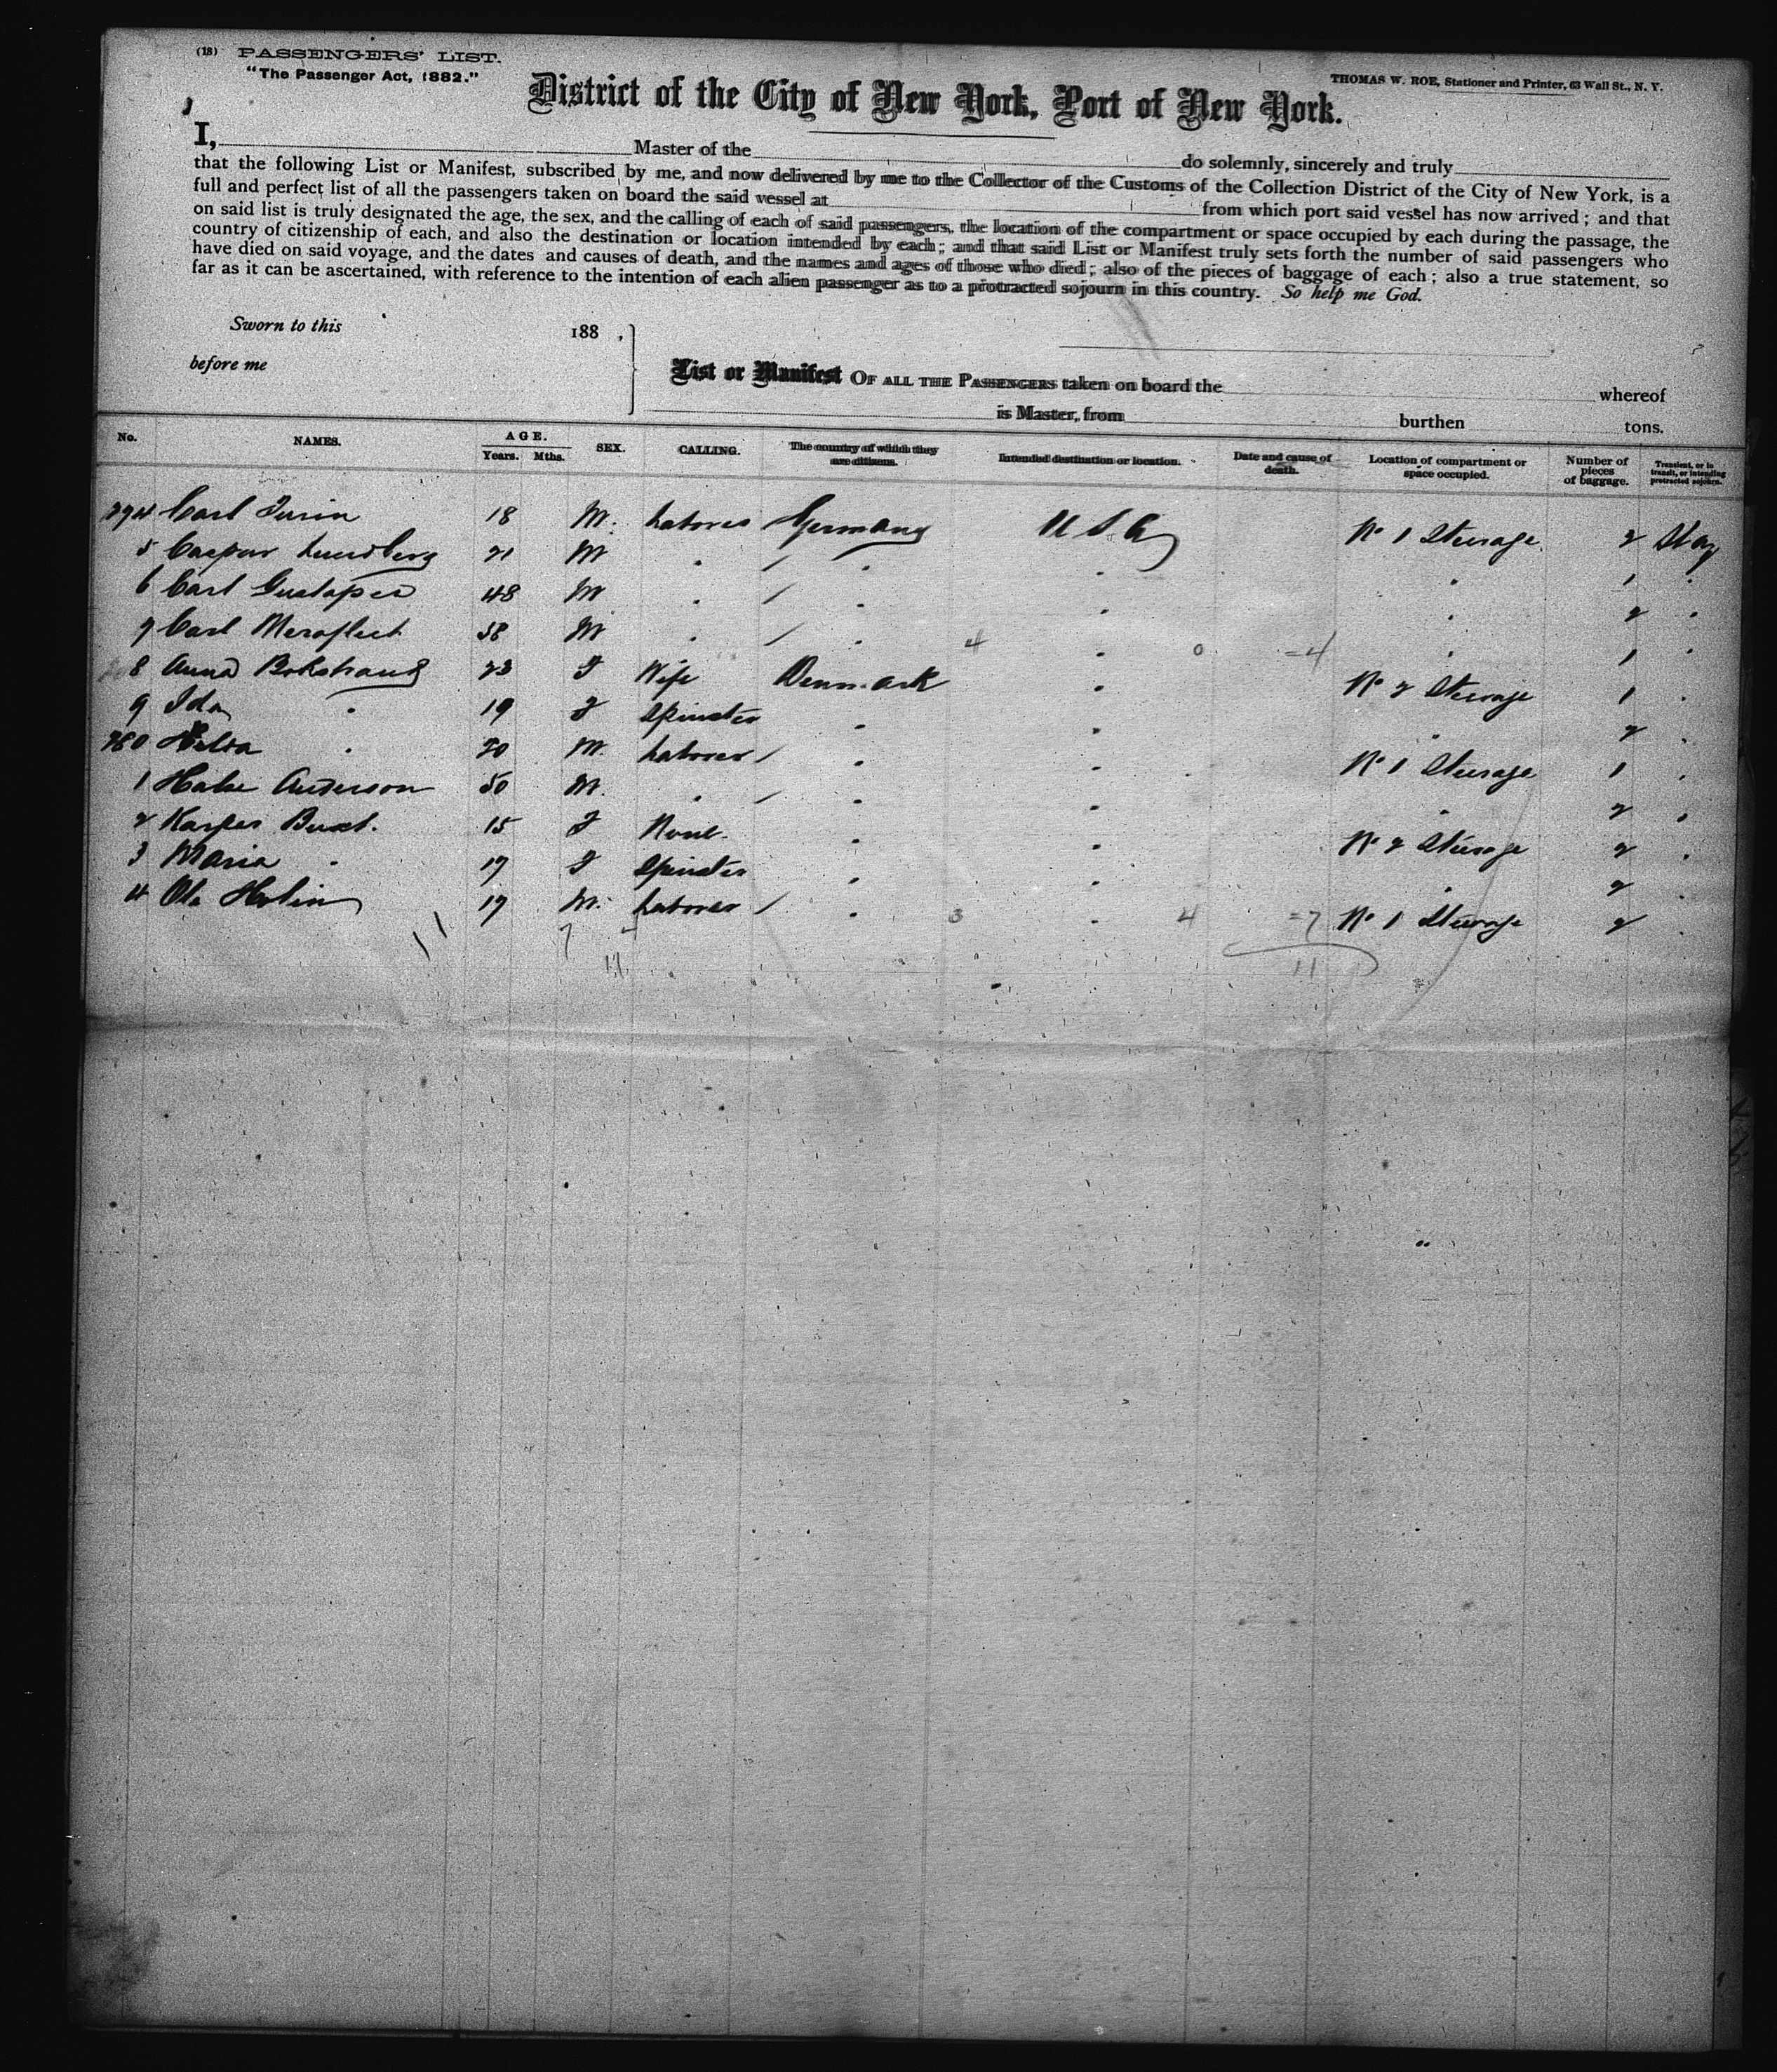 (18) PASSENGERS' LIST.
"The Passenger Act, 1882."
THOMAS W. ROE, Stationer and Printer, 63 Wall St., N. Y.
District of the City of New York, Port of New York.
I, Master of the do solemnly, sincerely and truly
that the following List or Manifest, subscribed by me, and now delivered by me to the Collector of the Customs of the Collection District of the City of New York, is a
full and perfect list of all the passengers taken on board the said vessel at from which port said vessel has now arrived; and that
on said list is truly designated the age, the sex, and the calling of each of said passengers, the location of the compartment or space occupied by each during the passage, the
country of citizenship of each, and also the destination or location intended by each; and that said List or Manifest truly sets forth the number of said passengers who
have died on said voyage, and the dates and causes of death, and the names and ages of those who died; also of the pieces of baggage of each; also a true statement, so
far as it can be ascertained, with reference to the intention of each alien passenger as to a protracted sojourn in this country. So help me God.
Sworn to this 188 ,
before me
List or Manifest OF ALL THE PASSENGERS taken on board the whereof
is Master, from burthen tons.
No. NAMES. AGE. Years. Mths. SEX. CALLING. The country of which they are citizens. Intended destination or location. Date and cause of death. Location of compartment or space occupied. Number of pieces of baggage. Transient, or in transit, or intending protracted sojourn.
274 Carl 18 M. Labores Germany U S A No 1 Steerage 2 Stay
5 Caspar Lundberg 21 M 1
6 Carl 48 M 2
7 Carl 38 M 4 0 =4 1
8 Anna 23 F Wife Denmark No 2 Steerage 1
9 Ida 19 F Spinster 2
280 20 M. Labores No 1 Steerage 1
1 Anderson 50 M. 2
2 15 F None No 2 Steerage 2
3 Maria 17 F Spinster 2
4 Ole Holin 17 M. Labores 3 4 =7 No 1 Steerage 2
11 7 4 11
11